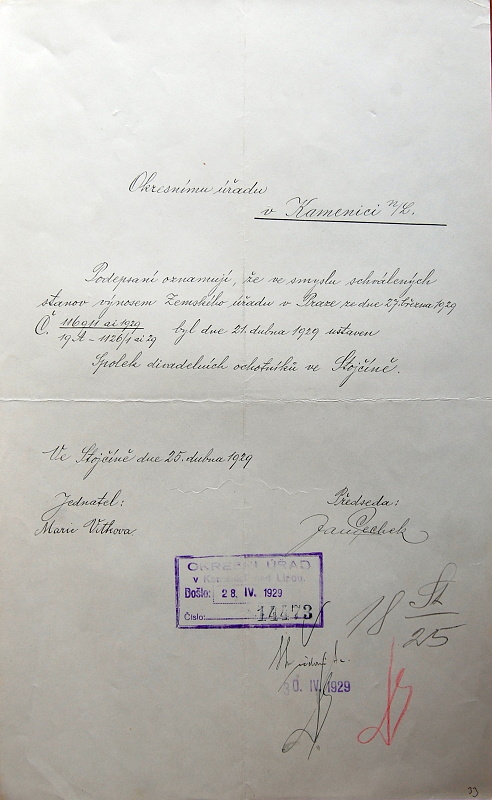 Okresnímu úřadu
v Kamenici n/L.
Podepsaní oznamují, že ve smyslu schválených
stanov výnosem Zemského úřadu v Praze ze dne 27. března 1929
Č. 116911 ai 1929
19 A - 1126/1 ai 29 byl dne 21. dubna 1929 ustaven
Spolek divadelních ochotníků ve Stojčíně.
Ve Stojčíně dne 25. dubna 1929
Jednatel: Předseda:
Marie Vitkova Jan Čechek
OKRESNÍ ÚŘAD
v Kamenici nad Lipou.
Došlo: 28. IV. 1929
Číslo: 14473
18
25
30. IV. 1929